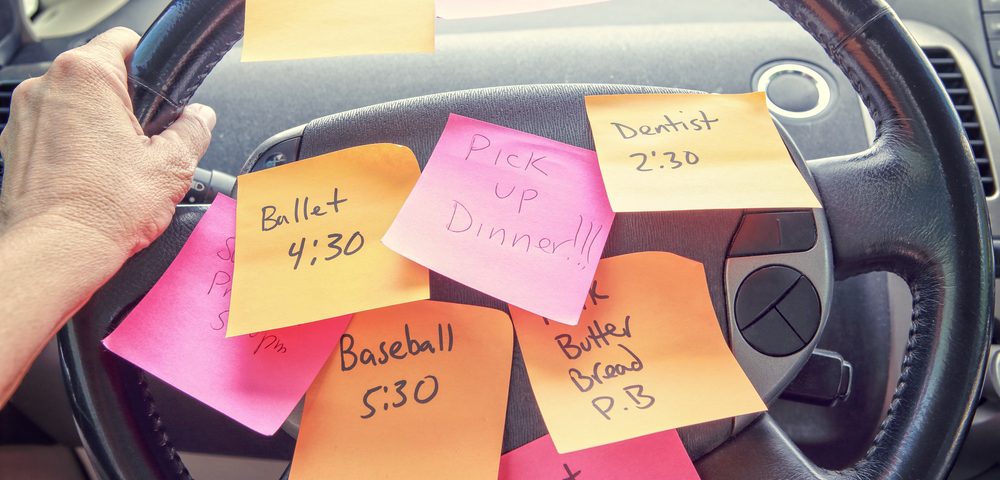 Dentist
2:30
Pick
up
Dinner!!!
Ballet
4:30
pm
Baseball
5:30
Butter
Bread
P.B